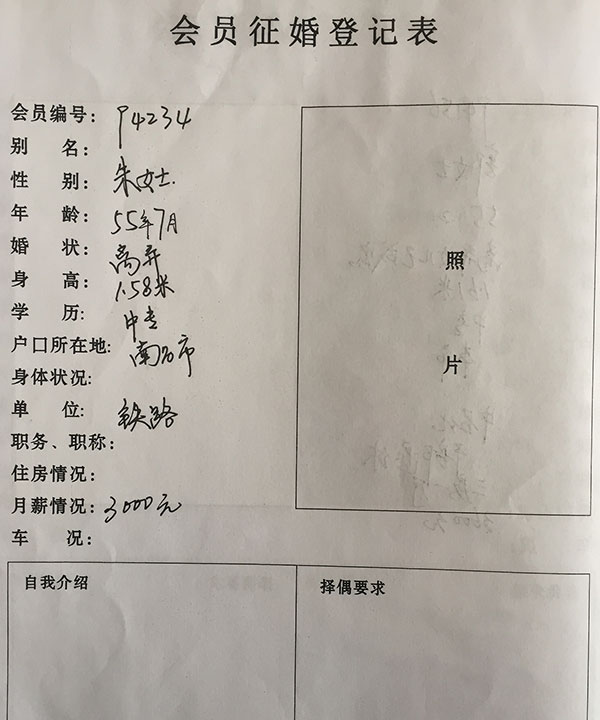 会员征婚登记表
会员编号: P4234
别 名:
性 别: 朱女士.
年 龄: 55年7月
婚 状: 离异
身 高: 1.58米
学 历: 中专
户口所在地: 南昌市
身体状况:
单 位: 铁路
职务、职称:
住房情况:
月薪情况: 3000元
车 况:
照
片
自我介绍
择偶要求